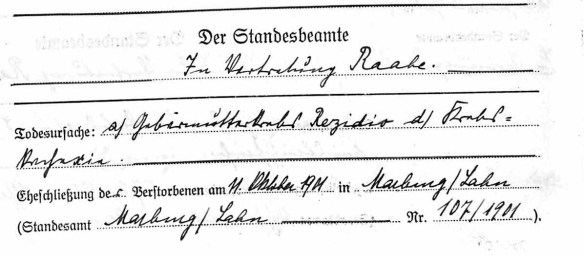 Der Standesbeamte
In Vertretung Raabe.
Todesursache: a) Gebärmutterkrebs Rezidiv d) Krebs=
kachexie.
Eheschließung des Verstorbenen am 11. Oktober 1901 in Marburg/Lahn
(Standesamt Marburg/Lahn Nr. 107/1901).